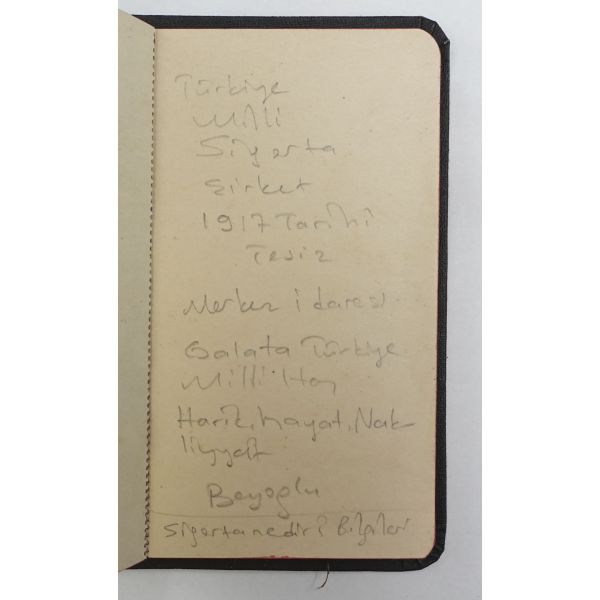 Türkiye
Milli
Sigorta
Şirket
1917 Tarihi
Tesiz
Merkez idaresi
Galata Türkiye
Milli Han
Harik, hayat, Nak
liyyat
Beyoglu
Sigorta nedir? Bilgileri